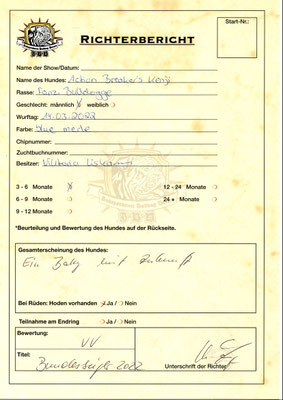 Start-Nr.:
RICHTERBERICHT
Name der Show/Datum:
Name des Hundes: Action Breakers Kenji
Rasse: Franz. Bulldogge
Geschlecht: männlich weiblich
Wurftag: 14.03.2022
Farbe: blue merle
Chipnummer:
Zuchtbuchnummer:
Besitzer: Viktoria
3 - 6 Monate X 12 - 24 Monate
6 - 9 Monate 24 + Monate
9 - 12 Monate
*Beurteilung und Bewertung des Hundes auf der Rückseite.
Gesamterscheinung des Hundes:
Ein Baby mit Zukunft
Bei Rüden: Hoden vorhanden Ja / Nein
Teilnahme am Endring Ja / Nein
Bewertung:
VV
Titel:
Bundessieger 2022
Unterschrift der Richter